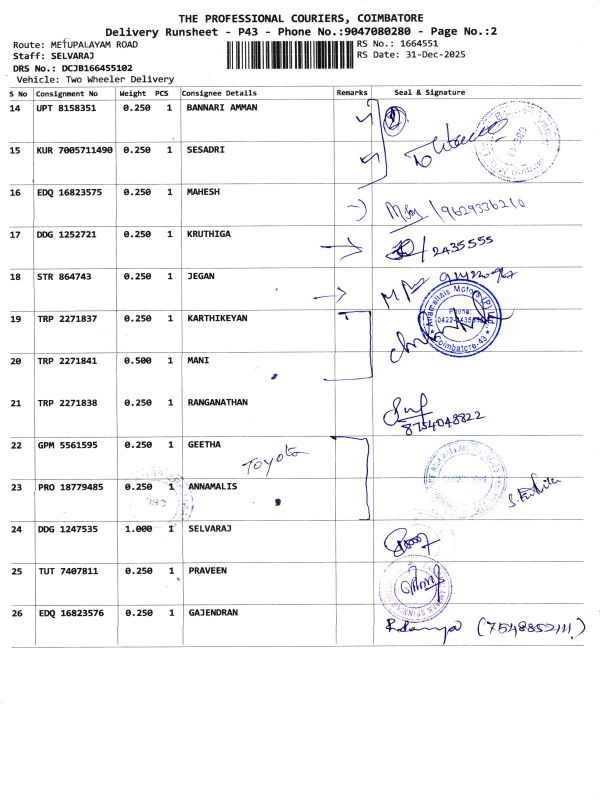 THE PROFESSIONAL COURIERS, COIMBATORE
Delivery Runsheet - P43 - Phone No.:9047080280 - Page No.:2
Route: METUPALAYAM ROAD RS No.: 1664551
Staff: SELVARAJ RS Date: 31-Dec-2025
DRS No.: DCJB166455102
Vehicle: Two Wheeler Delivery
S No Consignment No Weight PCS Consignee Details Remarks Seal & Signature
14 UPT 8158351 0.250 1 BANNARI AMMAN
15 KUR 7005711490 0.250 1 SESADRI
16 EDQ 16823575 0.250 1 MAHESH
17 DDG 1252721 0.250 1 KRUTHIGA 2435555
18 STR 864743 0.250 1 JEGAN
19 TRP 2271837 0.250 1 KARTHIKEYAN
Anamallais Motors (P)
Phone:
Coimbatore-43
20 TRP 2271841 0.500 1 MANI
21 TRP 2271838 0.250 1 RANGANATHAN
8754048822
22 GPM 5561595 0.250 1 GEETHA
Toyota
23 PRO 18779485 0.250 1 ANNAMALIS
24 DDG 1247535 1.000 1 SELVARAJ
25 TUT 7407811 0.250 1 PRAVEEN
26 EDQ 16823576 0.250 1 GAJENDRAN
(7548852111)